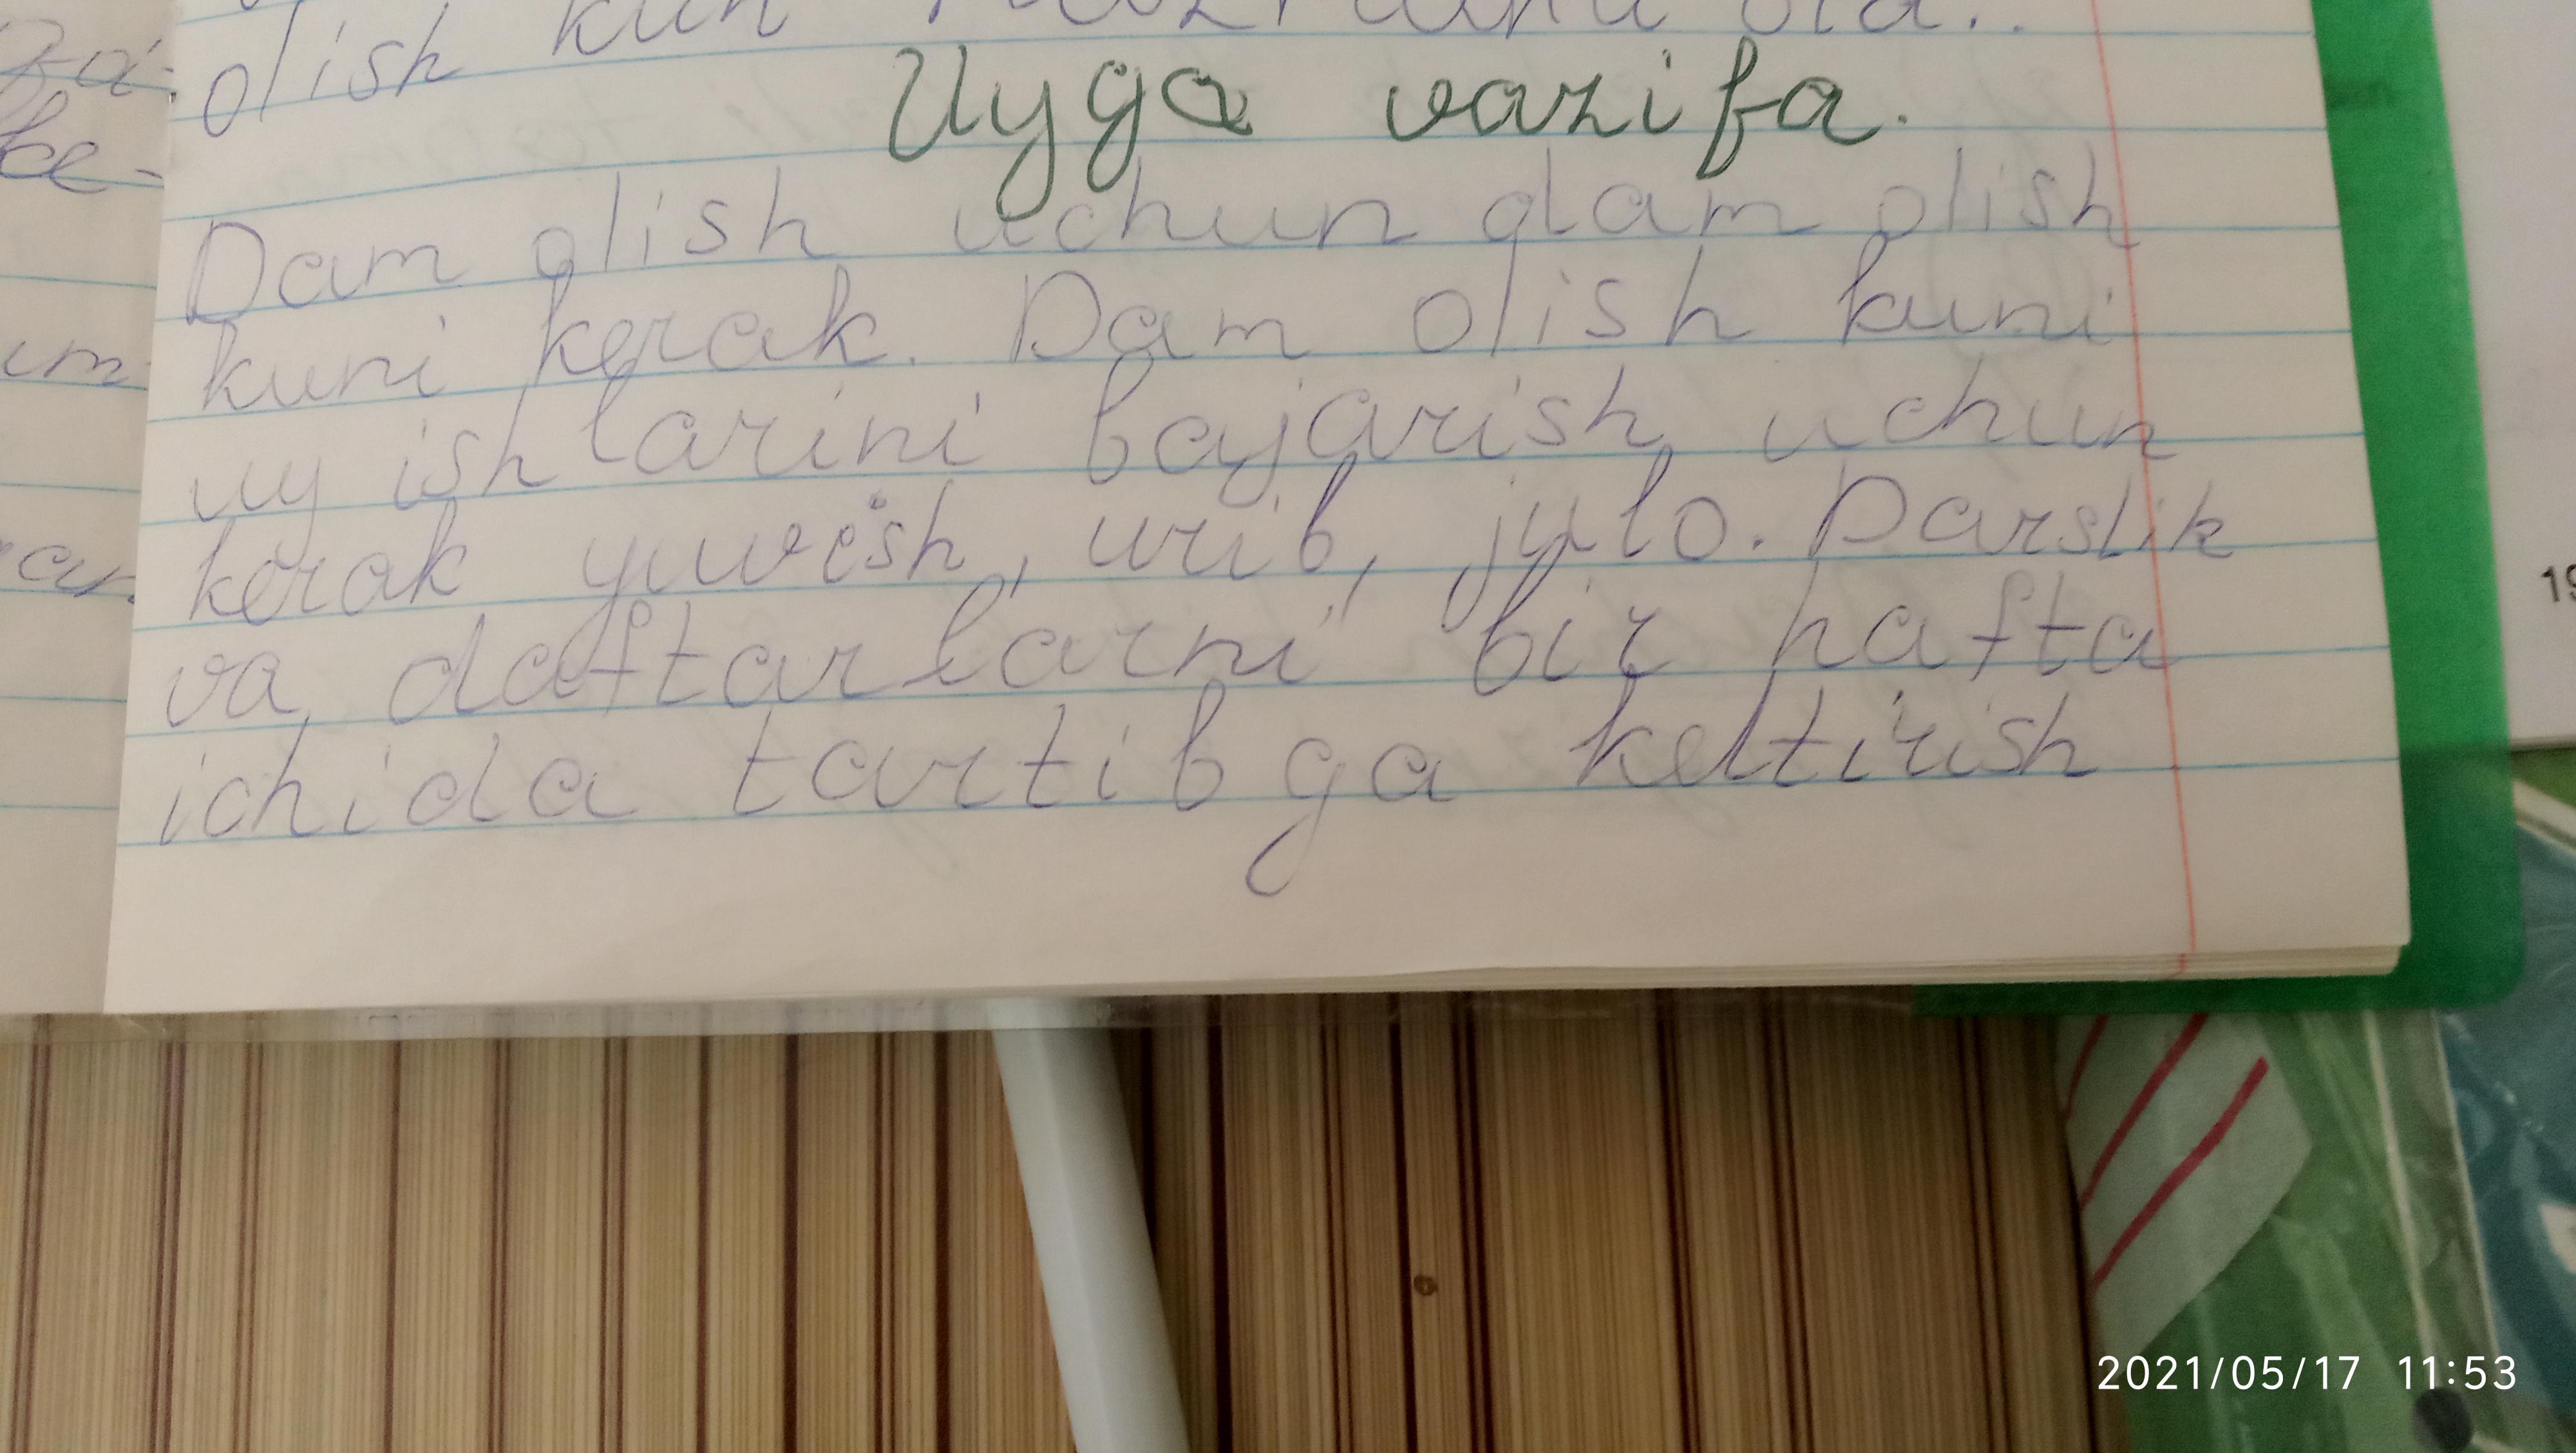 olish kun
Uyga vazifa.
Dam olish uchun dam olish
kuni kerak. Dam olish kuni
uy ishlarini bajarish uchun
kerak yuvish, urib, julo. Darslik
va daftarlarni bir hafta
ichida tartibga keltirish
19
2021/05/17 11:53